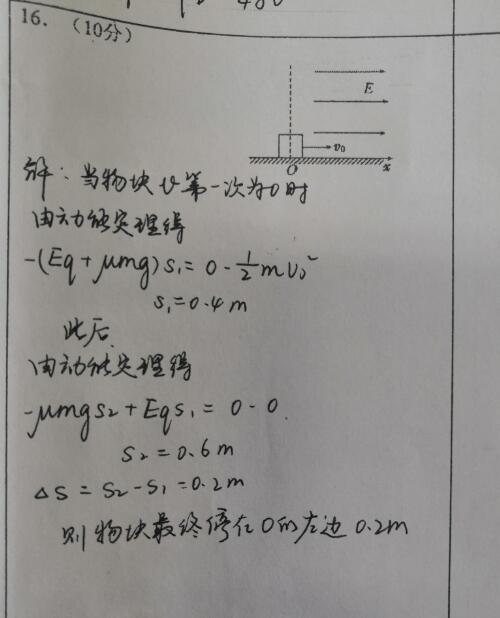 16. (10分)
E
v₀
O
x
解：当物块v第一次为0时
由动能定理得
-(Eq+μmg)s₁=0-½mv₀²
s₁=0.4m
此后
由动能定理得
-μmgs₂+Eqs₁=0-0
s₂=0.6m
△s=s₂-s₁=0.2m
则物块最终停在O的左边0.2m